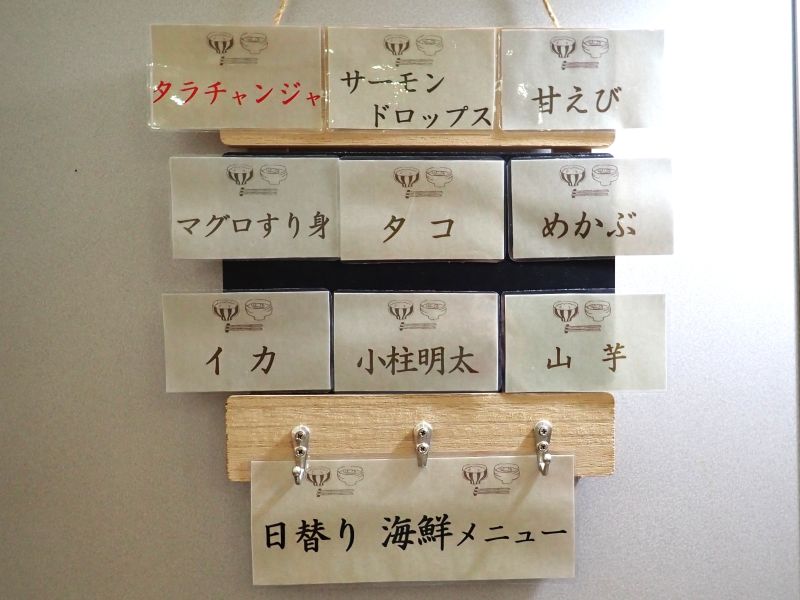 タラチャンジャ
サーモン
ドロップス
甘えび
マグロすり身
タコ
めかぶ
イカ
小柱明太
山芋
日替り 海鮮メニュー